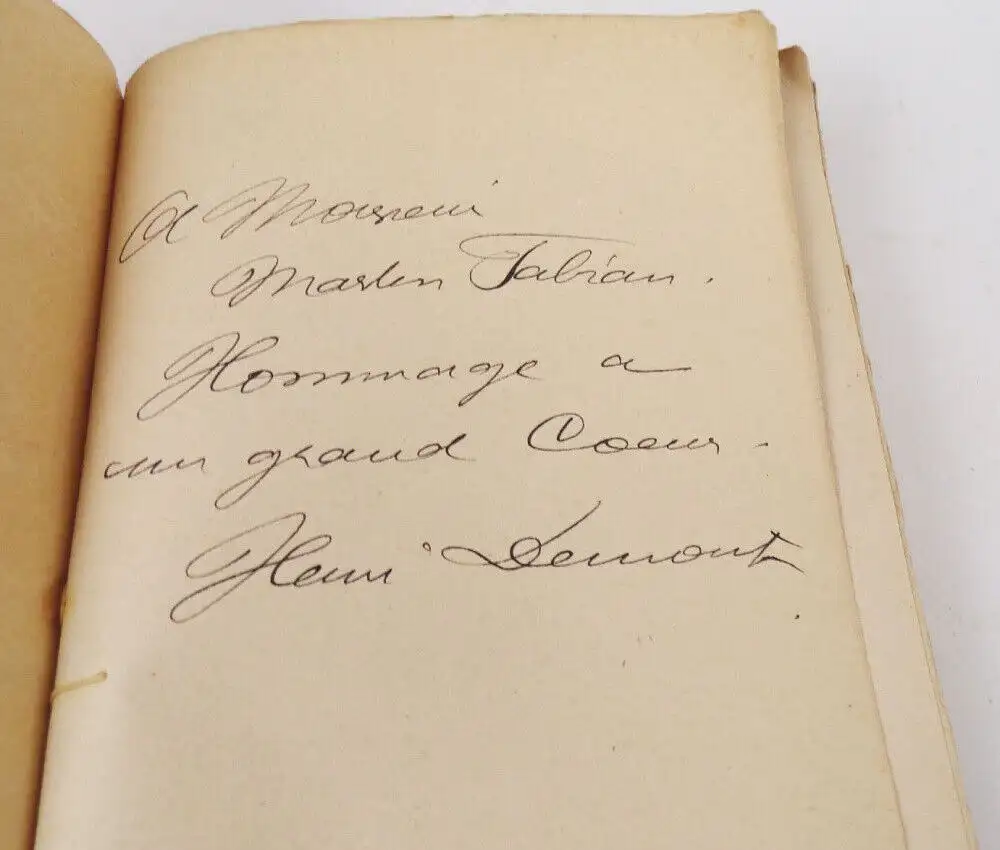 A Monsieur
Martin Fabian.
Hommage a
un grand Coeur.
Henri Demont